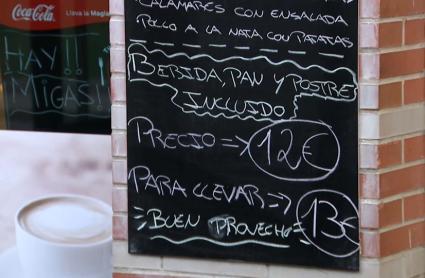 CocaCola
Llava la Magia
HAY!!
MIGAS!!
CALAMARES CON ENSALADA
POLLO A LA NATA CON PATATAS
BEBIDA, PAN Y POSTRE
INCLUIDO
PRECIO => 12€
PARA LLEVAR => 13€
BUEN PROVECHO